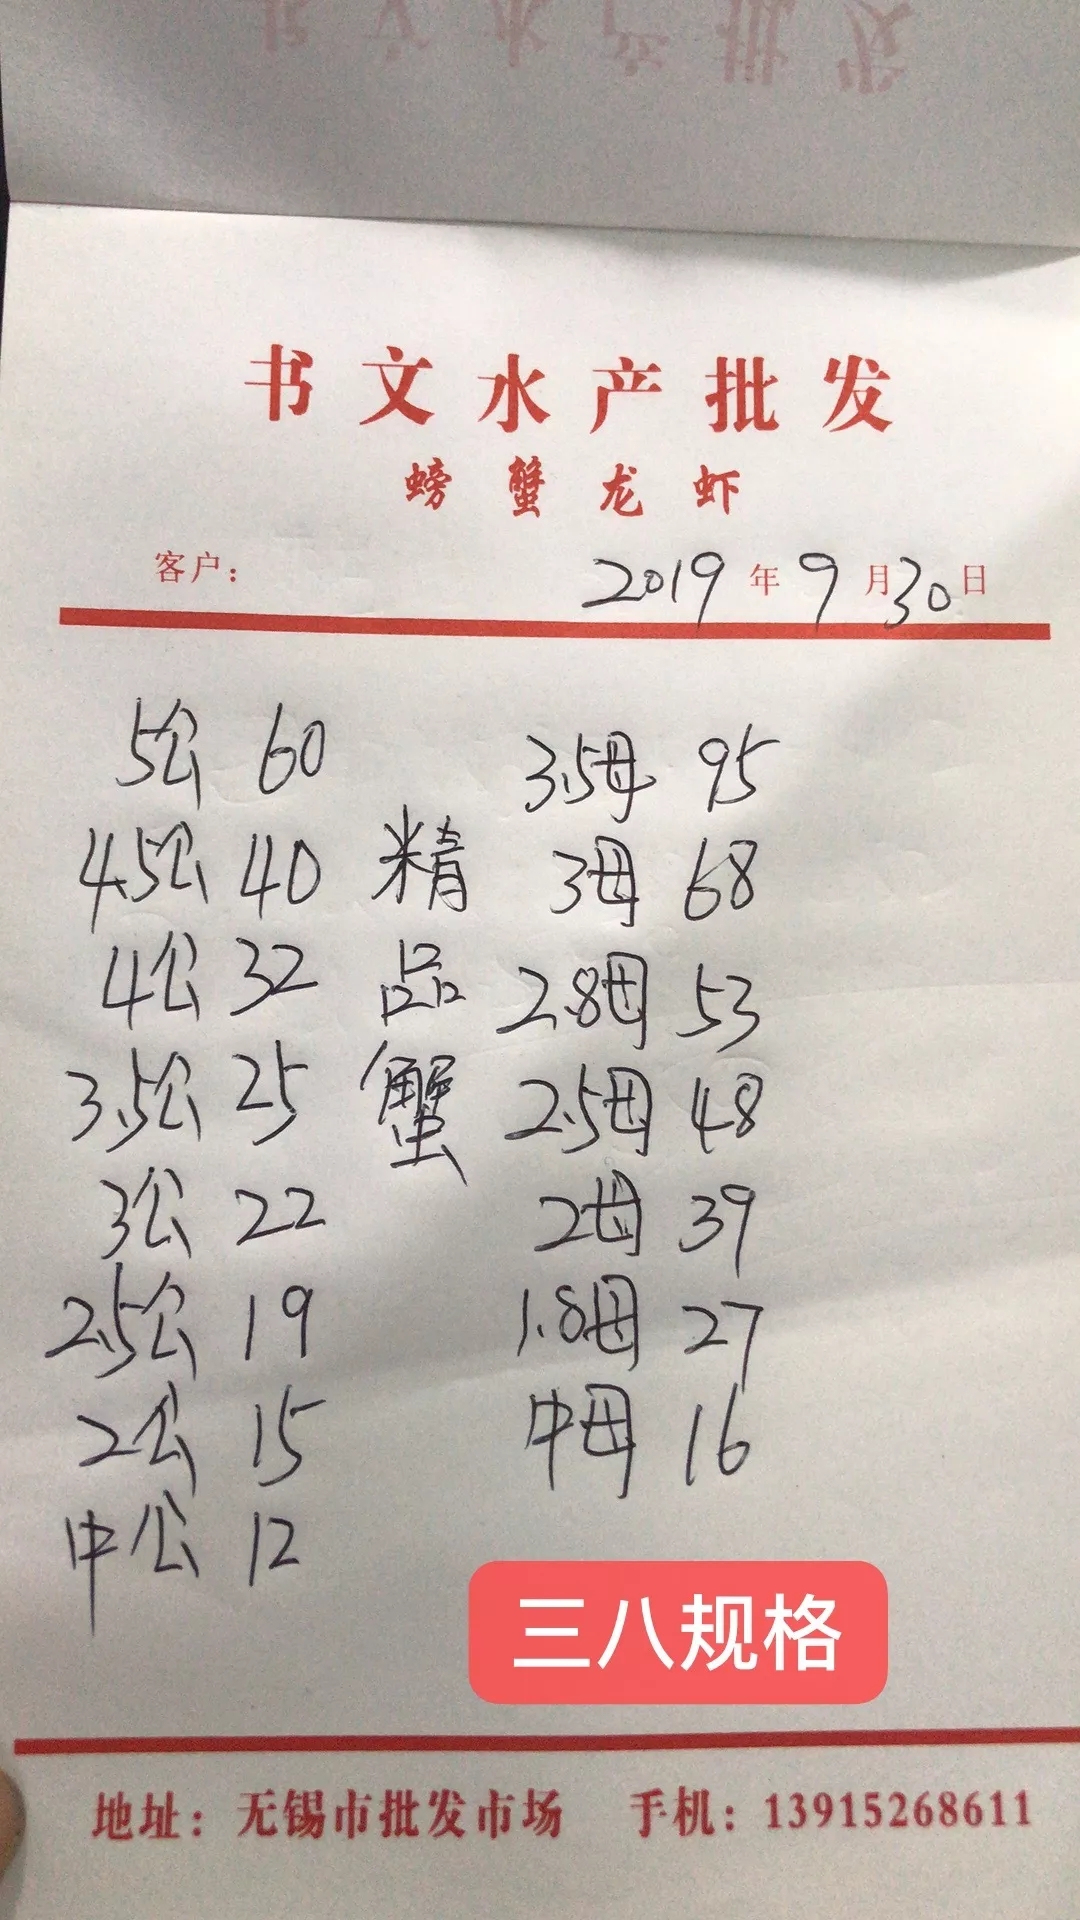 书文水产批发
螃蟹龙虾
客户： 2019年9月30日
5公 60
4.5公 40
4公 32
3.5公 25
3公 22
2.5公 19
2公 15
中公 12
精
品
蟹
3.5母 95
3母 68
2.8母 53
2.5母 48
2母 39
1.8母 27
中母 16
三八规格
地址：无锡市批发市场 手机：13915268611